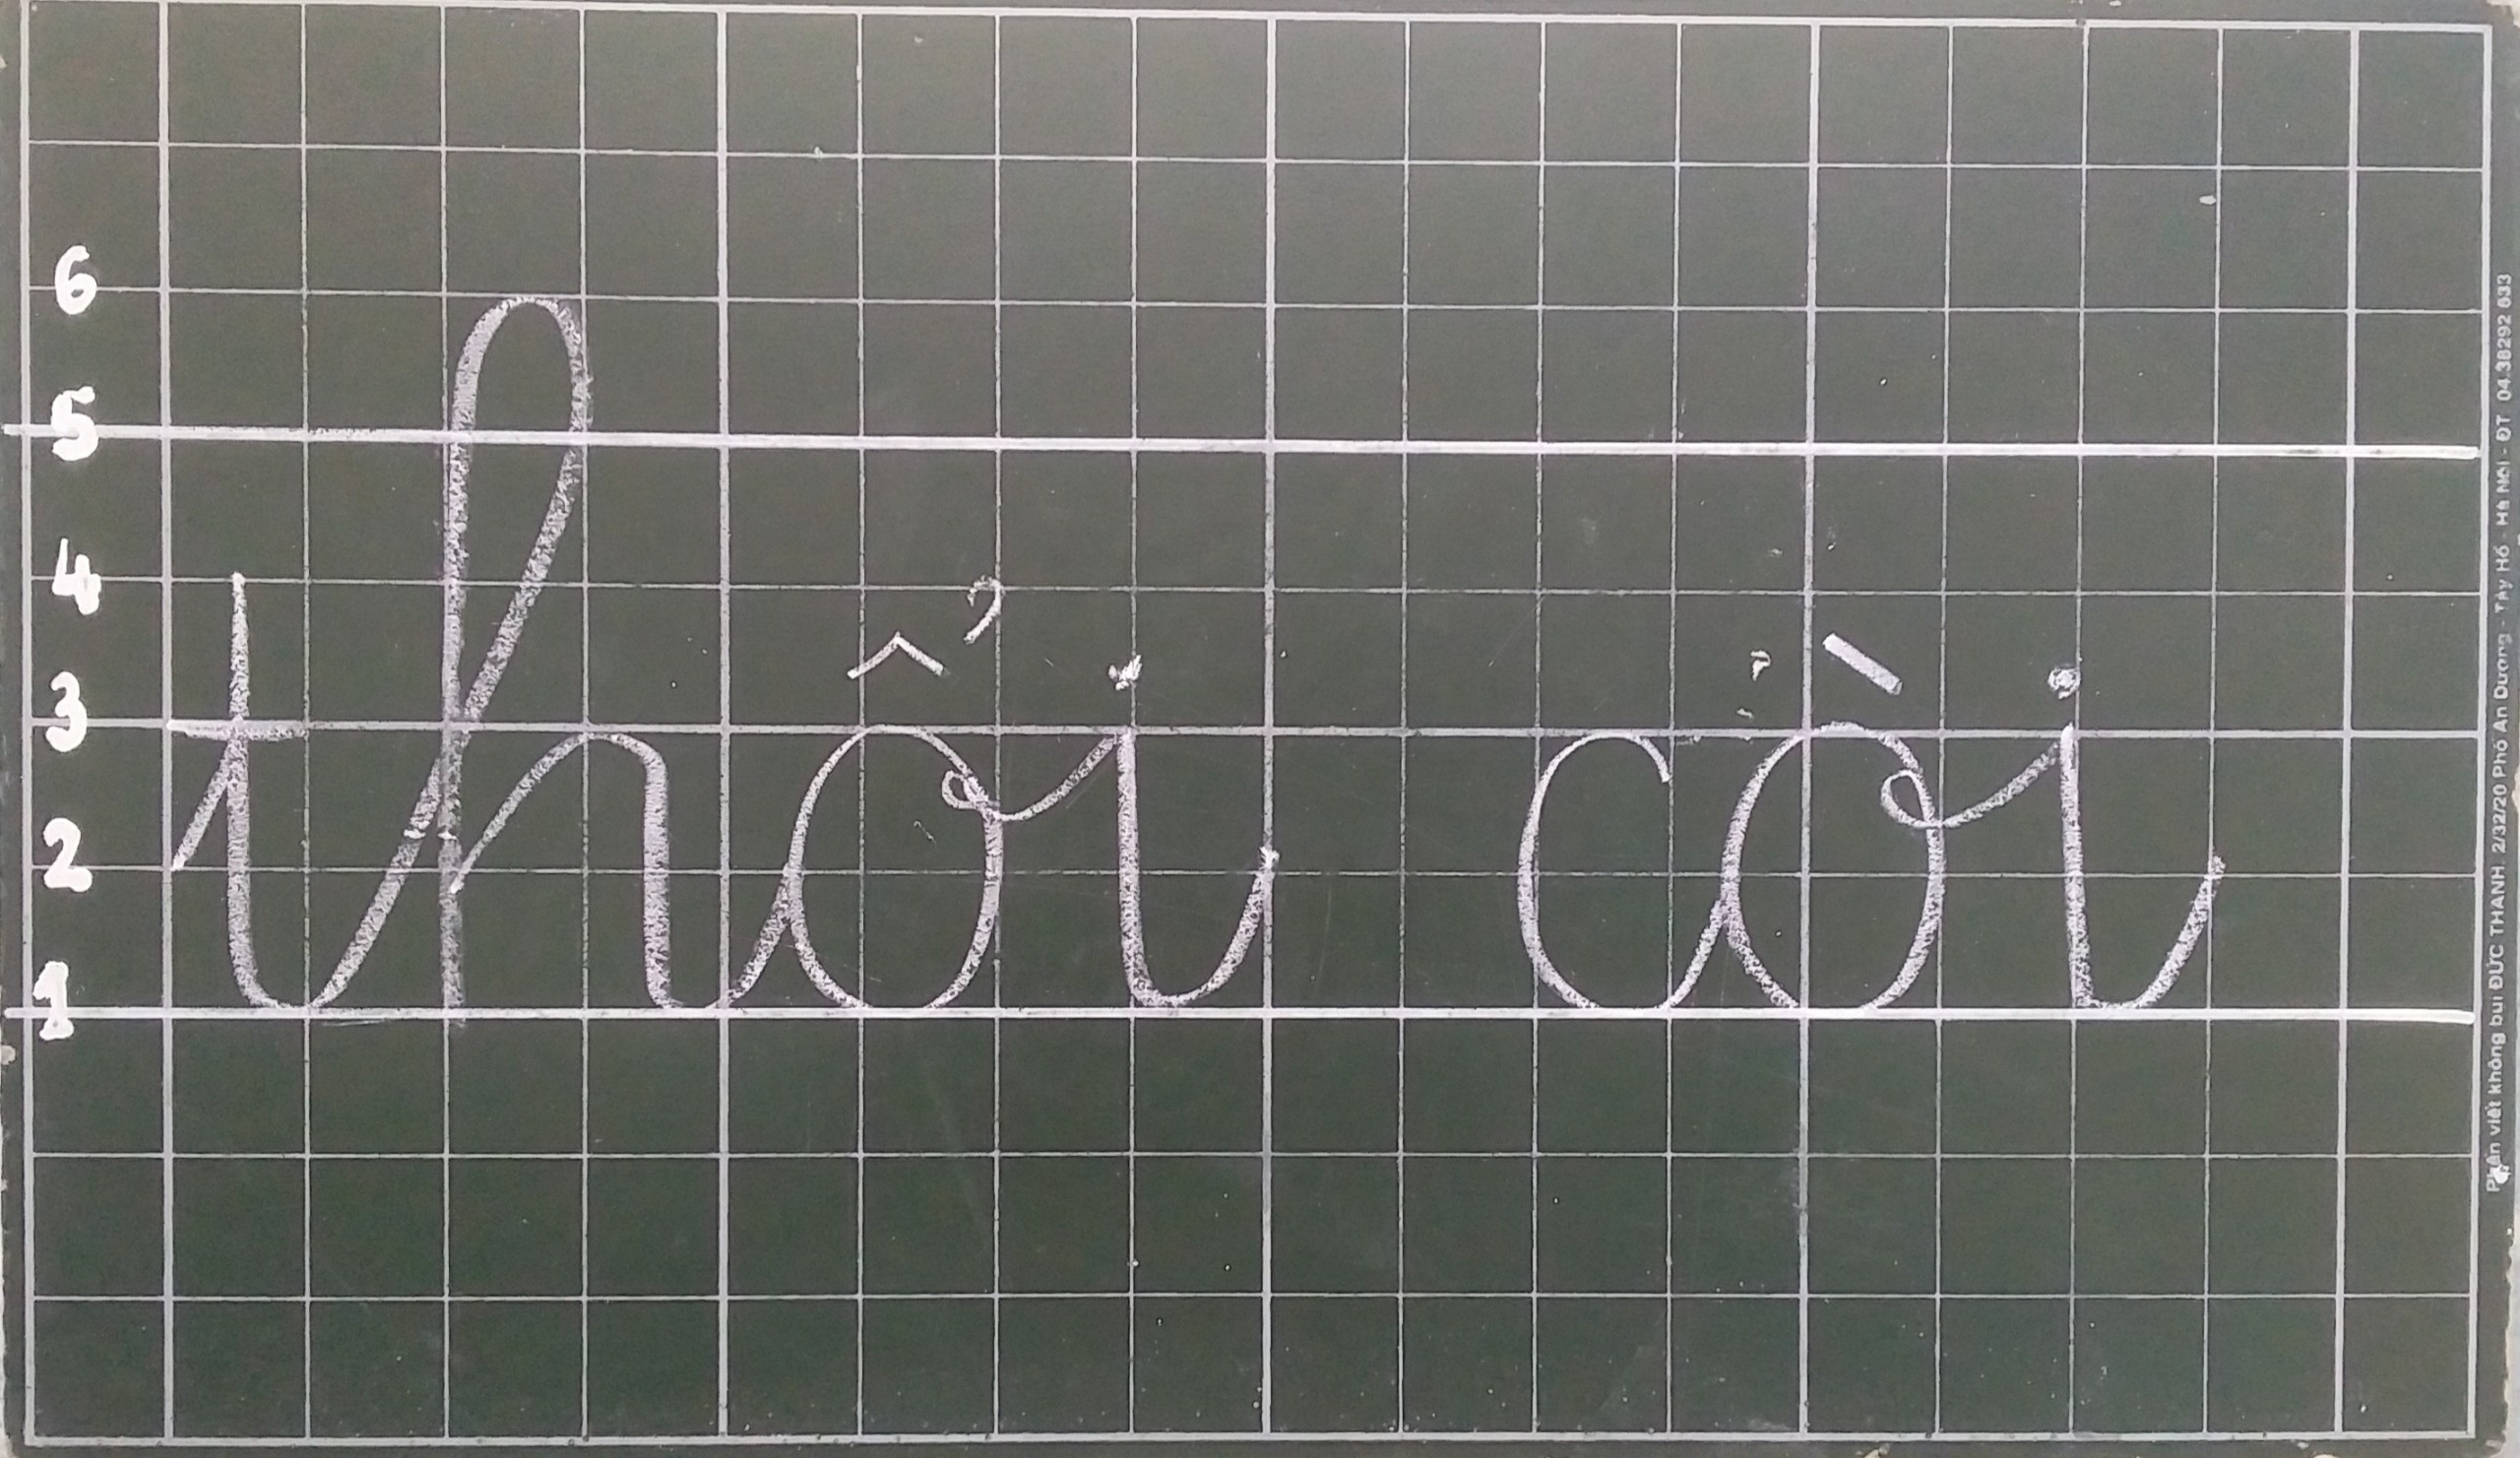 6
5
4
3
2
1
thổi còi
Phấn viết không bụi ĐỨC THANH. 2/32/20 Phố An Dương - Tây Hồ - Hà Nội - ĐT 04.38292 633